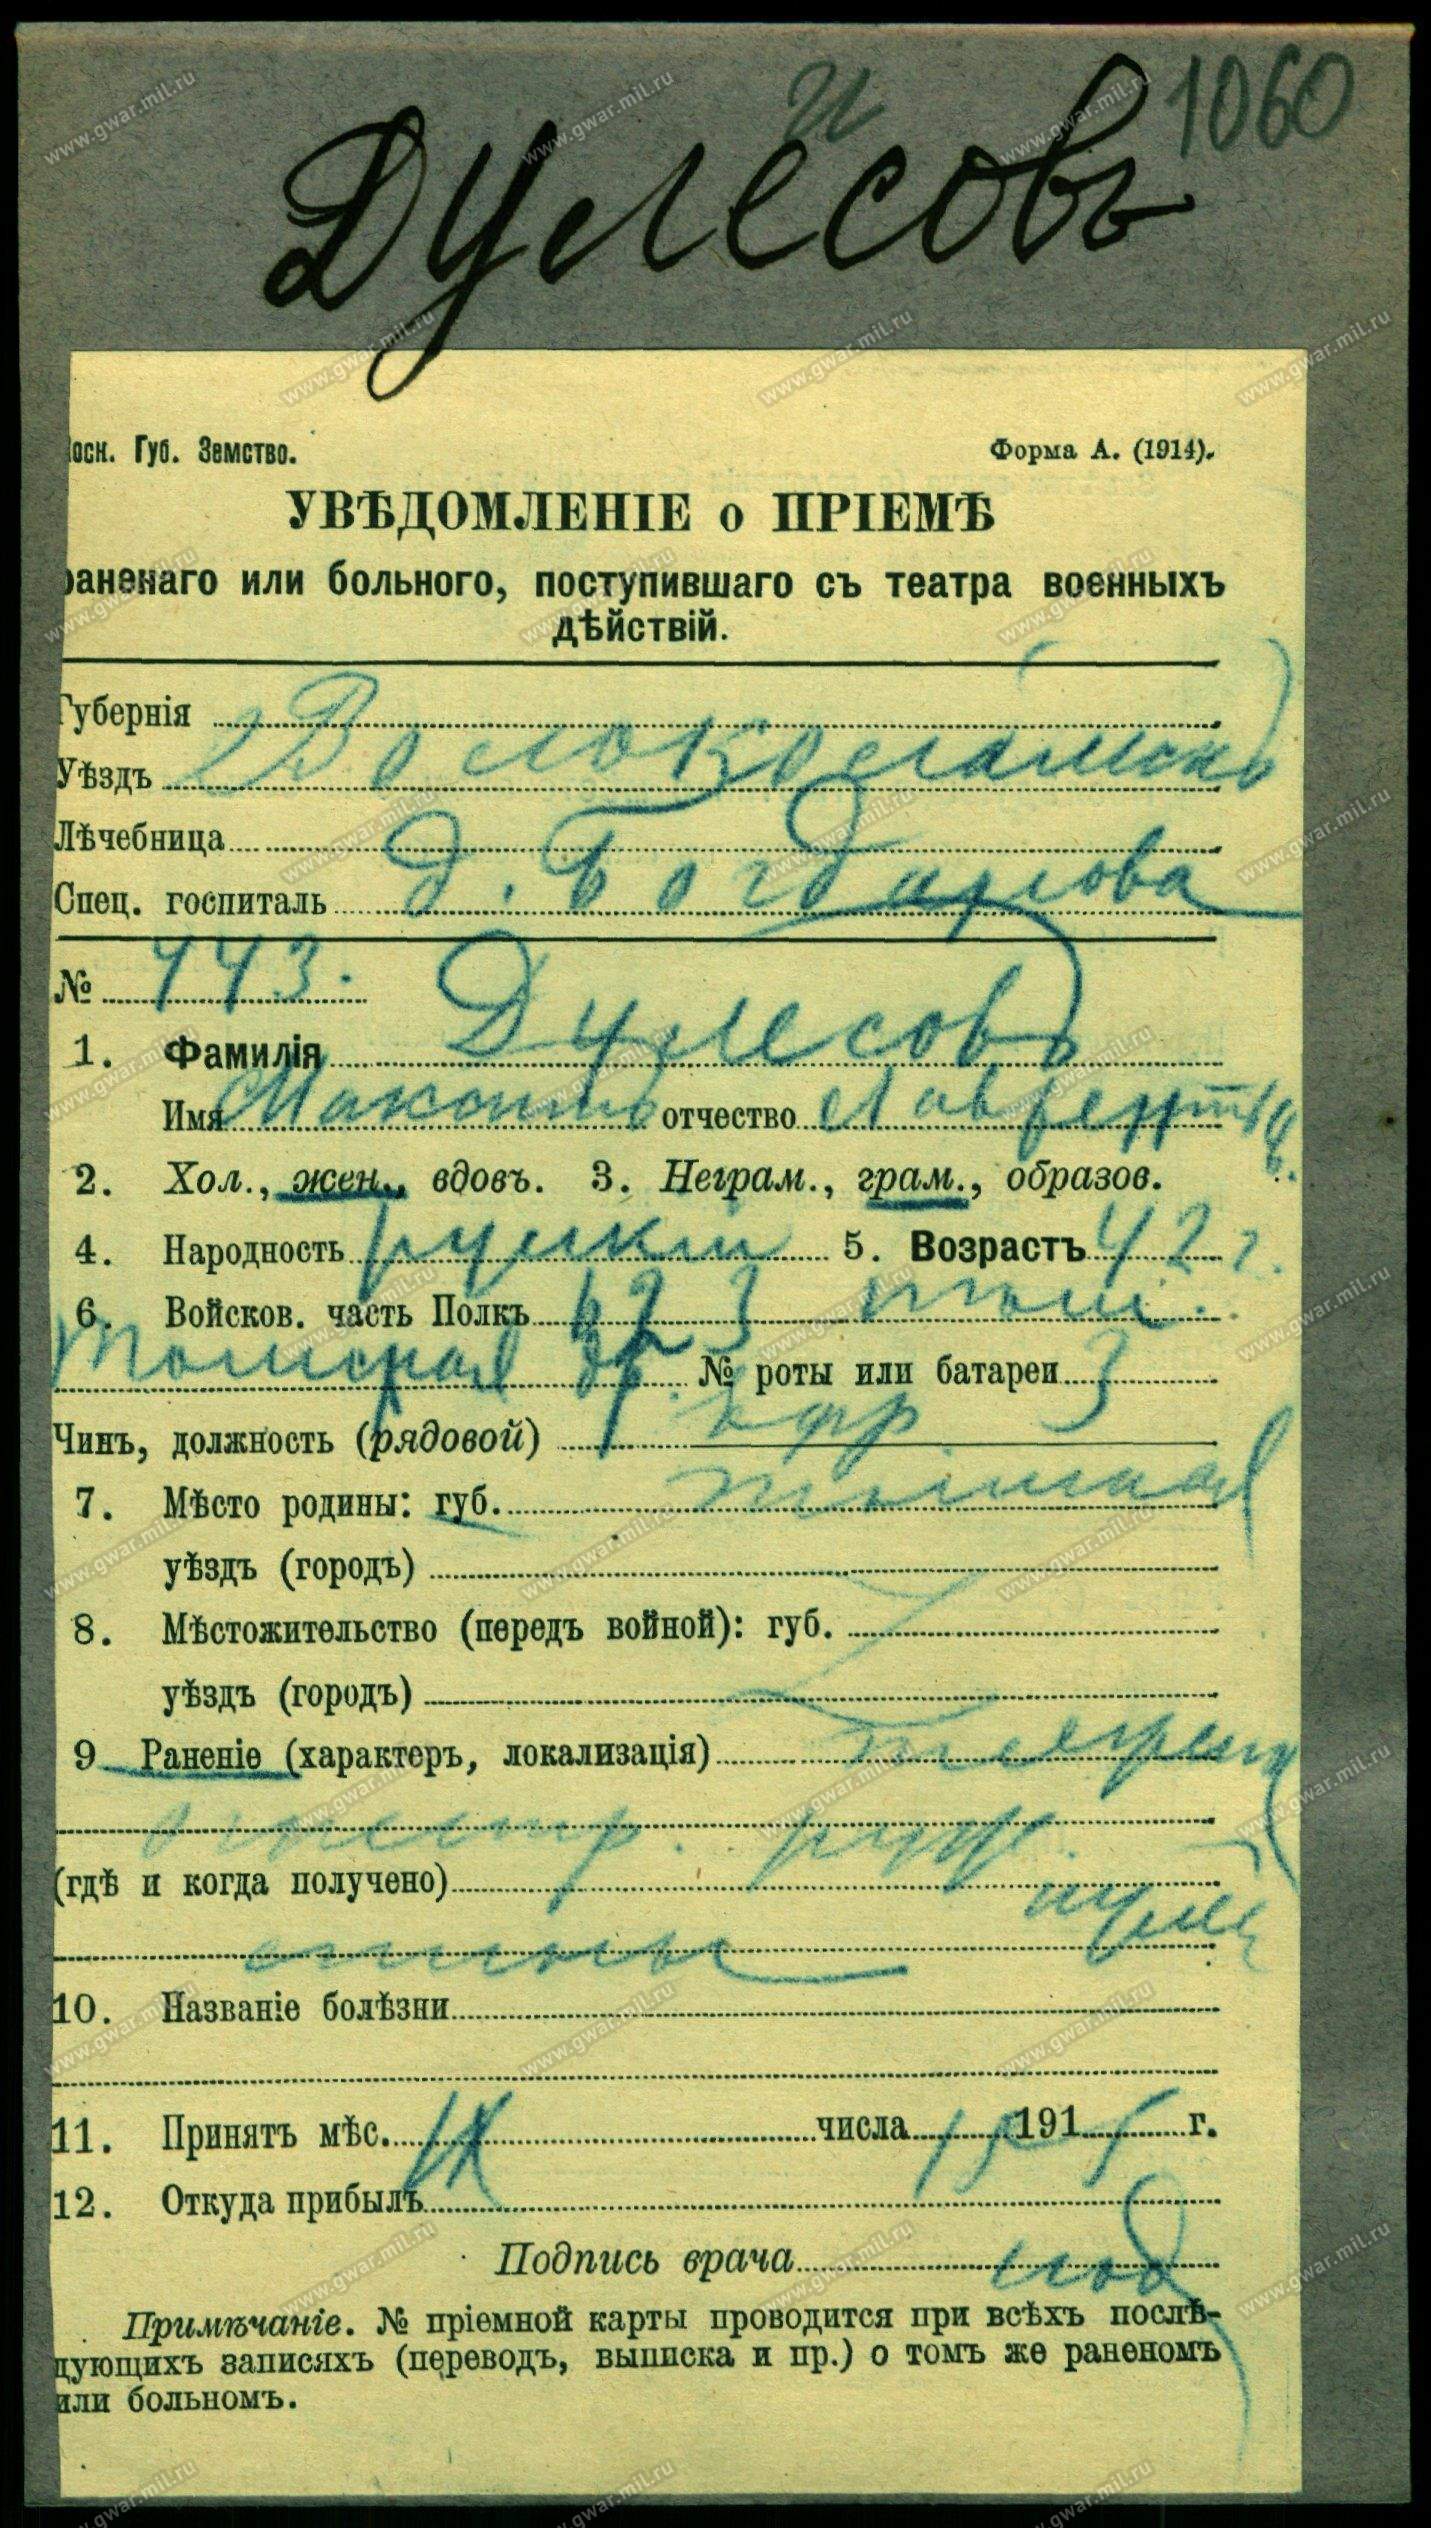 и 1060
Дулесовъ
оск. Губ. Земство. Форма А. (1914).
УВѢДОМЛЕНІЕ о ПРІЕМѢ
раненаго или больного, поступившаго съ театра военныхъ
дѣйствій.
Губернія
Уѣздъ Волоколамскъ
Лѣчебница
Спец. госпиталь д. Богданова
№ 443.
1. Фамилія Дулесовъ
Имя отчество Лаврент
2. Хол., жен., вдовъ. 3. Неграм., грам., образов.
4. Народность русскій 5. Возрастъ 42 г.
6. Войсков. часть Полкъ 623
Томская др. № роты или батареи 3
Чинъ, должность (рядовой) ефр
7. Мѣсто родины: губ. Томская
уѣздъ (городъ)
8. Мѣстожительство (передъ войной): губ.
уѣздъ (городъ)
9 Раненіе (характеръ, локализація)
огнестр. руж.
(гдѣ и когда получено) пулей
10. Названіе болѣзни
11. Принятъ мѣс. IX числа 191 г.
12. Откуда прибылъ
Подпись врача
Примѣчаніе. № пріемной карты проводится при всѣхъ послѣ-
дующихъ записяхъ (переводъ, выписка и пр.) о томъ же раненомъ
или больномъ.
www.gwar.mil.ru